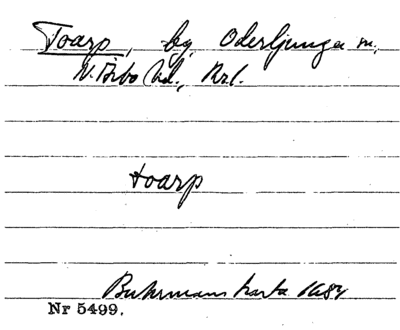 Toarp, by, Oderljunga sn,
N. Åsbo hd, Krl.
toarp
Buhrmans karta 1684
Nr 5499.